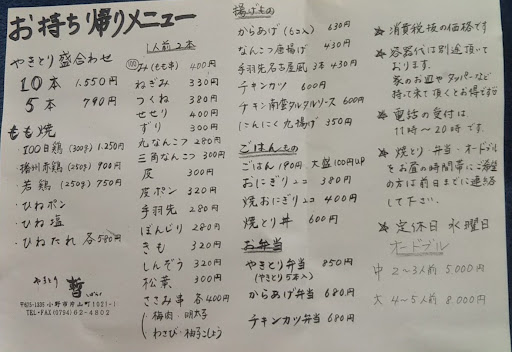 お持ち帰りメニュー
やきとり盛合わせ
10本 1.550円
5本 790円
もも焼
・100日鶏(300g) 1.250円
・播州赤鶏(250g) 900円
・若鶏(250g) 750円
・ひねポン
・ひね塩
・ひねたれ 各580円
やきとり 暫
〒675-1335 小野市片山町1021-1
TEL・FAX (0794) 62-4802
1人前2本
み(もも串) 400円
ねぎみ 330円
つくね 380円
せせり 400円
ずり 300円
丸なんこつ 280円
三角なんこつ 300円
皮 300円
皮ポン 320円
手羽先 280円
ぼんじり 280円
きも 320円
しんぞう 320円
松葉 300円
ささみ串 各400円
・梅肉・明太子
・わさび・柚子こしょう
揚げもの
からあげ(6コ入) 630円
なんこつ唐揚げ 430円
手羽先名古屋風 3本 430円
チキンカツ 600円
チキン南蛮タルタルソース 600円
にんにく丸揚げ 350円
ごはんもの
ごはん 190円 大盛100円UP
おにぎり2コ 380円
焼おにぎり2コ 400円
焼とり丼 600円
お弁当
やきとり弁当 850円
(やきとり5本入)
からあげ弁当 680円
チキンカツ弁当 680円
★ 消費税抜の価格です
★ 容器代は別途頂いて
おります。
家のお皿やタッパーなど
持って来て頂くとお得です
★ 電話の受付は
11時〜20時です。
★ 焼とり・弁当・オードブル
をお昼の時間帯にご希望
の方は前日までに連絡
して下さい。
★ 定休日 水曜日
オードブル
中 2〜3人前 5.000円
大 4〜5人前 8.000円